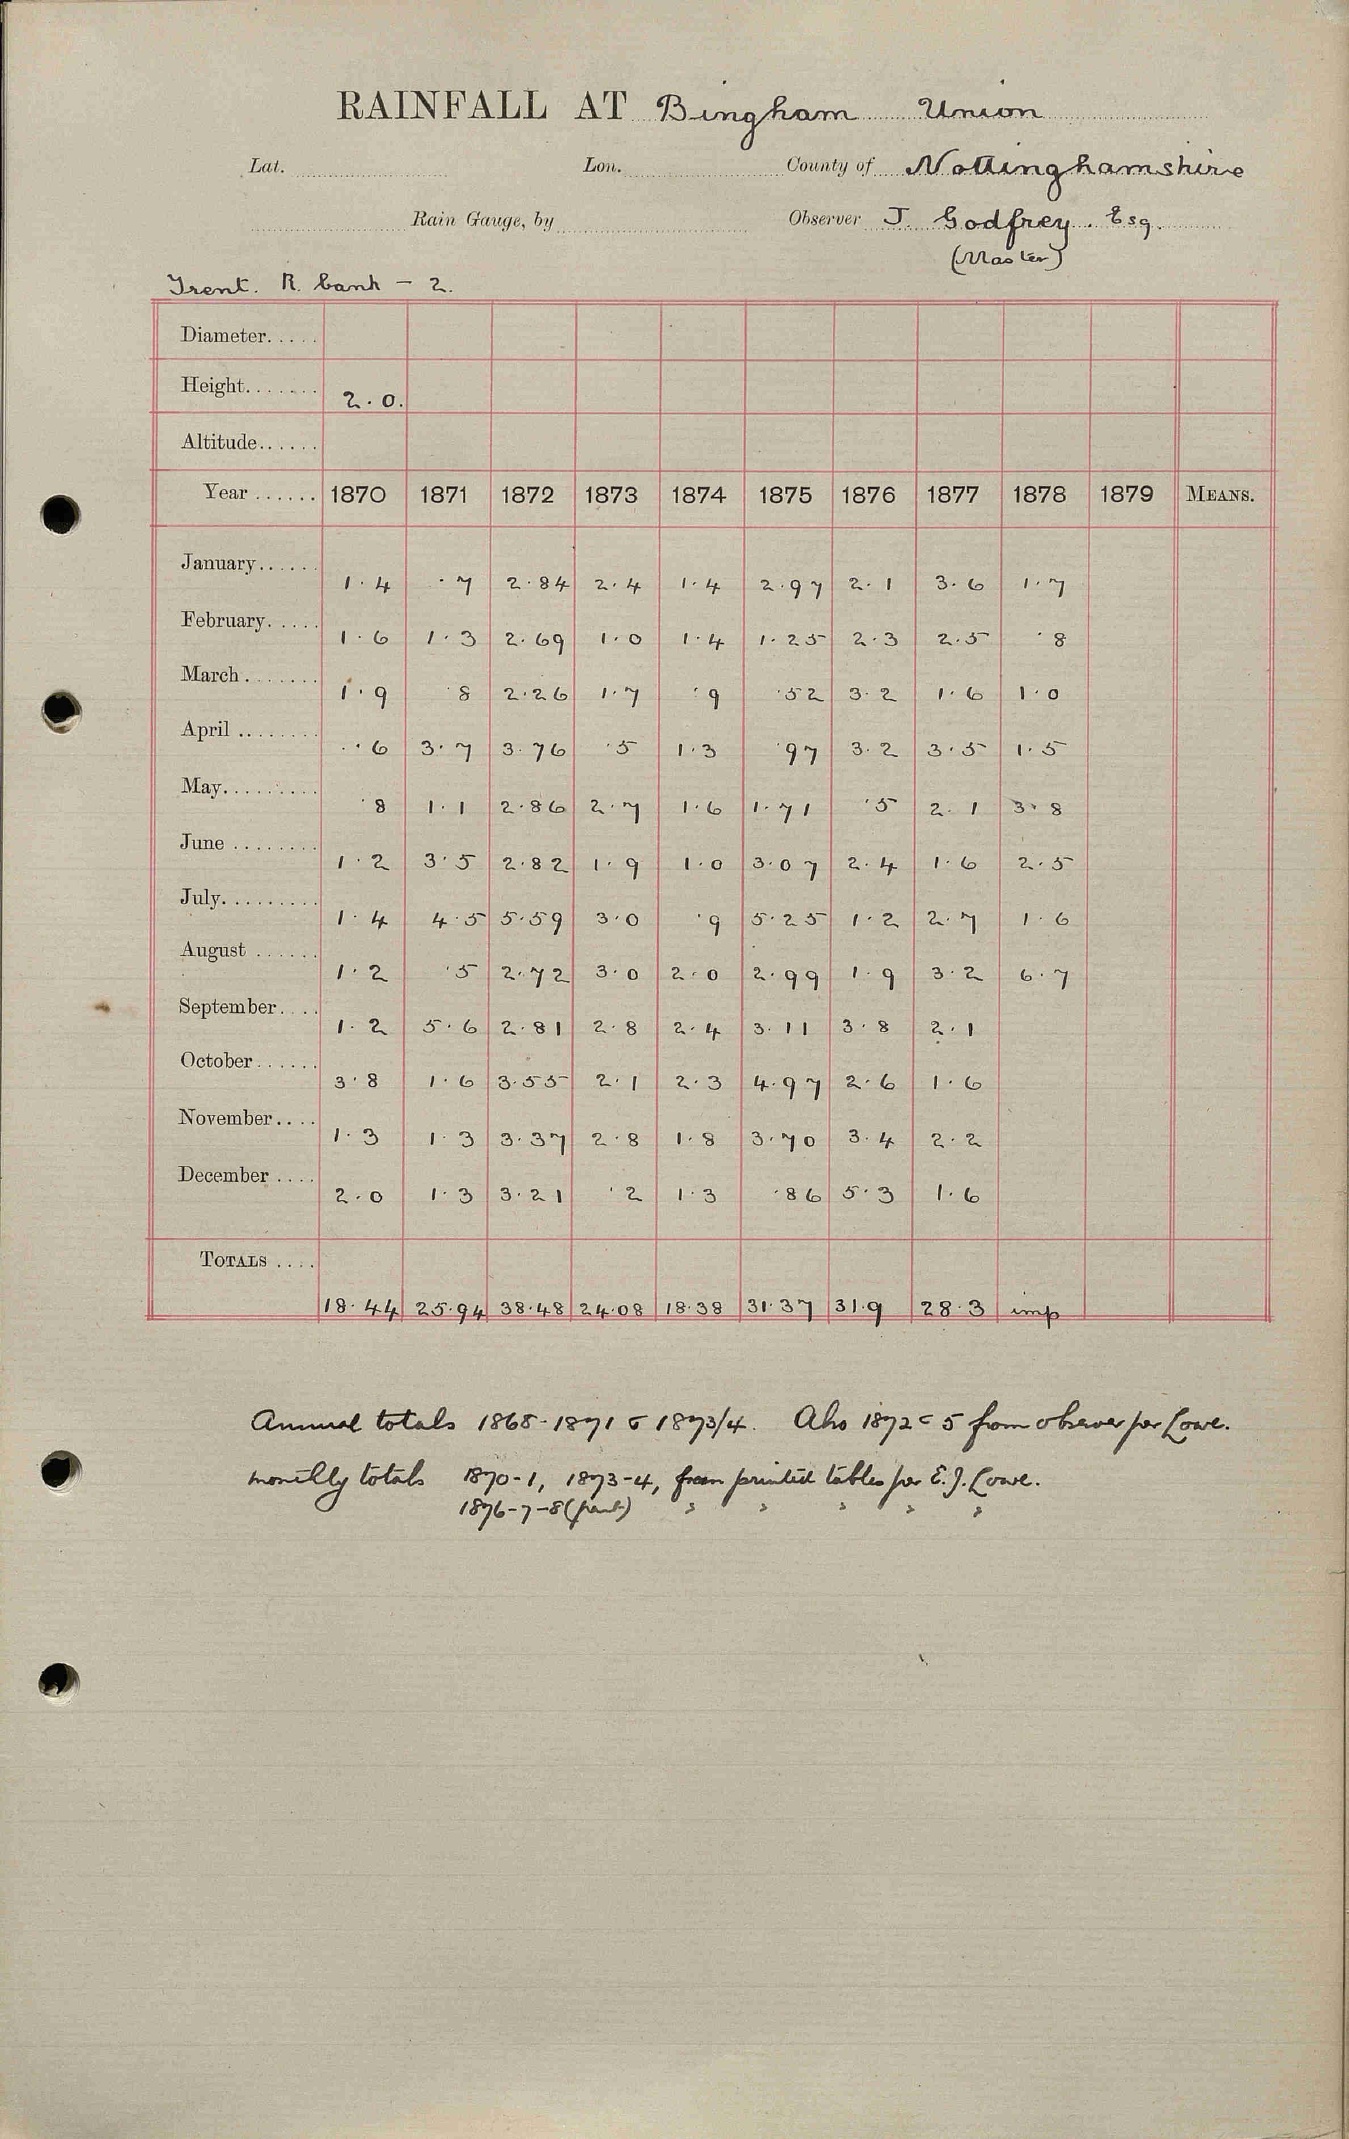 RAINFALL AT Bingham Union
Lat. Lon. County of Nottinghamshire
Rain Gauge, by Observer J. Godfrey. Esq.
(Master)
Trent. R. bank - 2.
Diameter.....
Height....... 2.0.
Altitude......
Year ...... 1870 1871 1872 1873 1874 1875 1876 1877 1878 1879 MEANS.
January...... 1.4 .7 2.84 2.4 1.4 2.97 2.1 3.6 1.7
February..... 1.6 1.3 2.69 1.0 1.4 1.25 2.3 2.5 .8
March....... 1.9 .8 2.26 1.7 .9 .52 3.2 1.6 1.0
April ........ .6 3.7 3.76 .5 1.3 .97 3.2 3.5 1.5
May......... .8 1.1 2.86 2.7 1.6 1.71 .5 2.1 3.8
June ........ 1.2 3.5 2.82 1.9 1.0 3.07 2.4 1.6 2.5
July......... 1.4 4.5 5.59 3.0 .9 5.25 1.2 2.7 1.6
August ...... 1.2 .5 2.72 3.0 2.0 2.99 1.9 3.2 6.7
September.... 1.2 5.6 2.81 2.8 2.4 3.11 3.8 2.1
October...... 3.8 1.6 3.55 2.1 2.3 4.97 2.6 1.6
November.... 1.3 1.3 3.37 2.8 1.8 3.70 3.4 2.2
December .... 2.0 1.3 3.21 .2 1.3 .86 5.3 1.6
TOTALS ....
18.44 25.94 38.48 24.08 18.38 31.37 31.9 28.3 imp
Annual totals 1868-1871 & 1873/4. Also 1872 & 5 from observer per Lowe.
monthly totals 1870-1, 1873-4, from printed tables per E.J. Lowe.
1876-7-8 (part) " " " " "